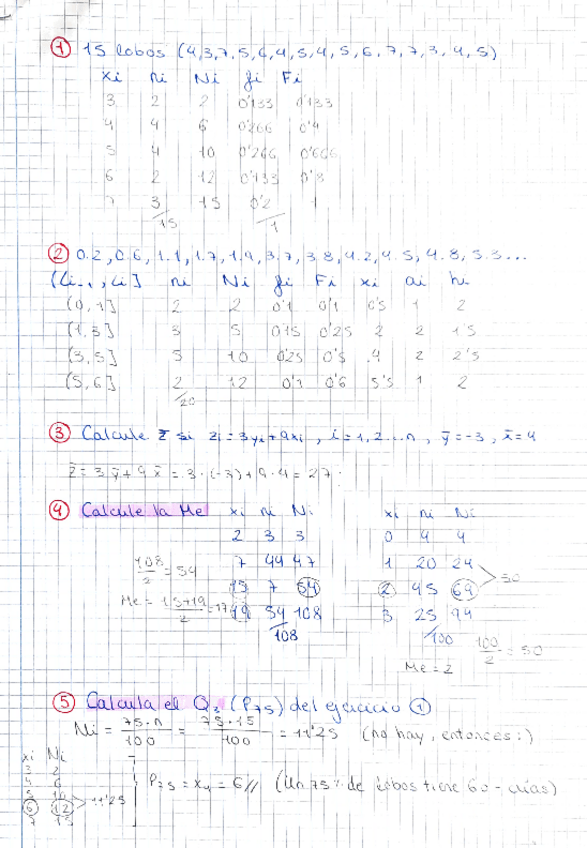 ① 15 lobos (4,3,7,5,6,4,5,4,5,6,7,7,3,4,5)
xi ni Ni fi Fi
3 2 2 0'133 0'133
4 4 6 0'266 0'4
5 4 10 0'266 0'666
6 2 12 0'133 0'8
7 3/15 15 0'2/1 1
② 0.2, 0.6, 1.1, 1.7, 1.9, 3.7, 3.8, 4.2, 4.5, 4.8, 5.3...
(Li-1, Li] ni Ni fi Fi xi ai hi
(0,1] 2 2 0'1 0'1 0'5 1 2
(1,3] 3 5 0'15 0'25 2 2 1'5
(3,5] 5 10 0'25 0'5 4 2 2'5
(5,6] 2 12 0'1 0'6 5'5 1 2
/20
③ Calcule z̄ si zi = 3yi + 9xi, i = 1, 2...n, ȳ = -3, x̄ = 4
z̄ = 3ȳ + 9x̄ = 3·(-3) + 9·4 = 27
④ Calcule la Me xi ni Ni xi ni Ni
2 3 3 0 4 4
108/2 = 54 7 44 47 1 20 24
15 7 54 2 45 69 > 50
Me = 15+19/2 = 17 19 54 108 3 25 94
/108 /100 100/2 = 50
Me = 2
⑤ Calcula el Q3 (P75) del ejercicio ①
Ni = 75·n/100 = 75·15/100 = 11'25 (no hay, entonces:)
xi Ni
3 2
6
10 P75 = x4 = 6// (Un 75% de lobos tiene 6 o - crías)
6 12 > 11'25
7 15